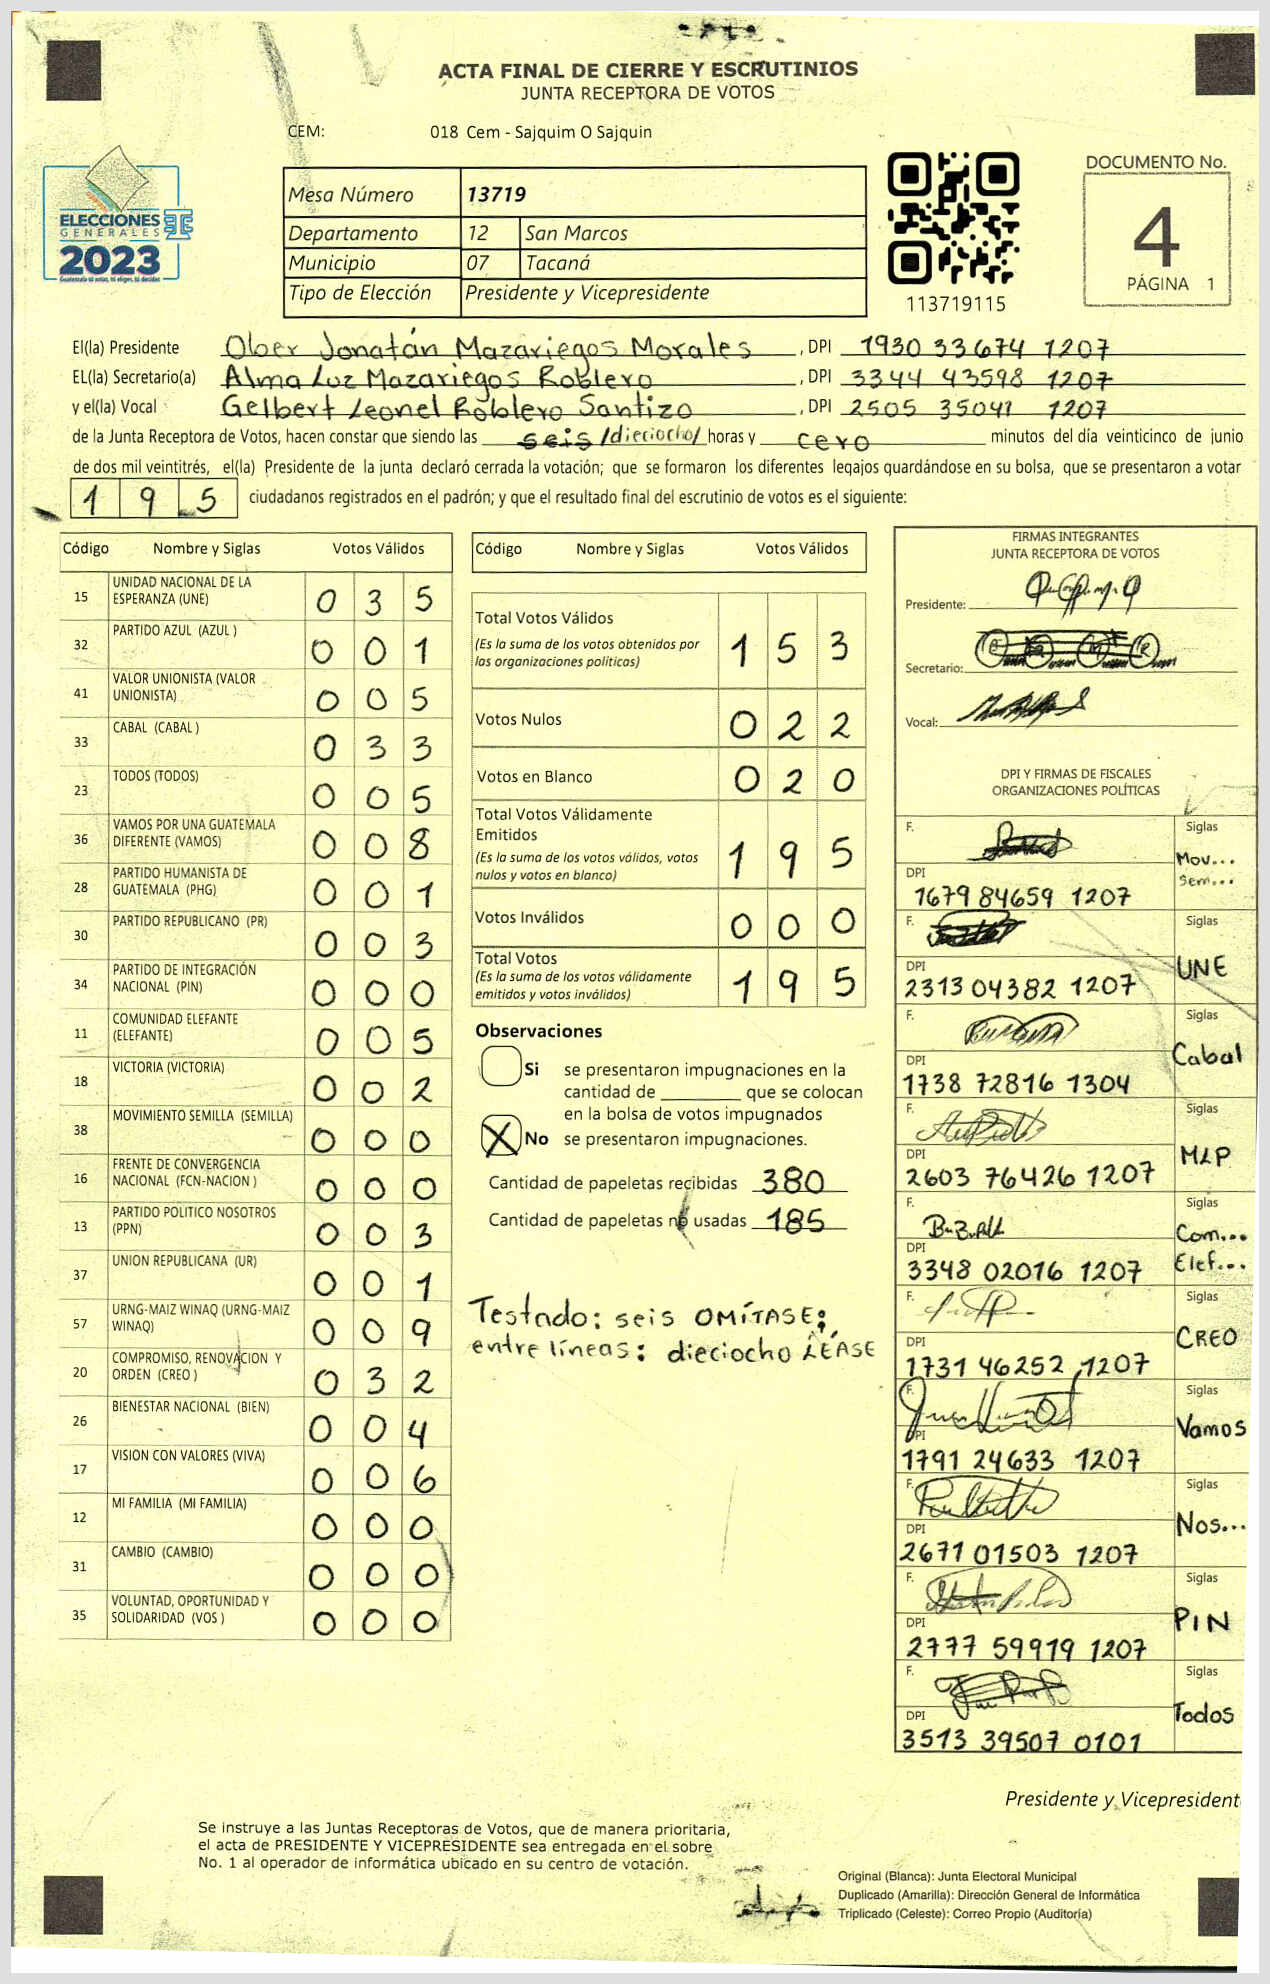 ACTA FINAL DE CIERRE Y ESCRUTINIOS
JUNTA RECEPTORA DE VOTOS
CEM: 018 Cem - Sajquim O Sajquin
ELECCIONES
GENERALES
2023
Guatemala tú votas, tú eliges, tú decides
TSE
Mesa Número 13719
Departamento 12 San Marcos
Municipio 07 Tacaná
Tipo de Elección Presidente y Vicepresidente
113719115
DOCUMENTO No.
4
PÁGINA 1
El(la) Presidente Ober Jonatán Mazariegos Morales, DPI 1930 33674 1207
EL(la) Secretario(a) Alma Luz Mazariegos Roblero, DPI 3344 43598 1207
y el(la) Vocal Gelbert Leonel Roblero Santizo, DPI 2505 35041 1207
de la Junta Receptora de Votos, hacen constar que siendo las seis /dieciocho/ horas y cero minutos del día veinticinco de junio
de dos mil veintitrés, el(la) Presidente de la junta declaró cerrada la votación; que se formaron los diferentes legajos guardándose en su bolsa, que se presentaron a votar
195 ciudadanos registrados en el padrón; y que el resultado final del escrutinio de votos es el siguiente:
Código Nombre y Siglas Votos Válidos
15 UNIDAD NACIONAL DE LA ESPERANZA (UNE) 0 3 5
32 PARTIDO AZUL (AZUL ) 0 0 1
41 VALOR UNIONISTA (VALOR UNIONISTA) 0 0 5
33 CABAL (CABAL ) 0 3 3
23 TODOS (TODOS) 0 0 5
36 VAMOS POR UNA GUATEMALA DIFERENTE (VAMOS) 0 0 8
28 PARTIDO HUMANISTA DE GUATEMALA (PHG) 0 0 1
30 PARTIDO REPUBLICANO (PR) 0 0 3
34 PARTIDO DE INTEGRACIÓN NACIONAL (PIN) 0 0 0
11 COMUNIDAD ELEFANTE (ELEFANTE) 0 0 5
18 VICTORIA (VICTORIA) 0 0 2
38 MOVIMIENTO SEMILLA (SEMILLA) 0 0 0
16 FRENTE DE CONVERGENCIA NACIONAL (FCN-NACION ) 0 0 0
13 PARTIDO POLITICO NOSOTROS (PPN) 0 0 3
37 UNION REPUBLICANA (UR) 0 0 1
57 URNG-MAIZ WINAQ (URNG-MAIZ WINAQ) 0 0 9
20 COMPROMISO, RENOVACION Y ORDEN (CREO ) 0 3 2
26 BIENESTAR NACIONAL (BIEN) 0 0 4
17 VISION CON VALORES (VIVA) 0 0 6
12 MI FAMILIA (MI FAMILIA) 0 0 0
31 CAMBIO (CAMBIO) 0 0 0
35 VOLUNTAD, OPORTUNIDAD Y SOLIDARIDAD (VOS ) 0 0 0
Código Nombre y Siglas Votos Válidos
Total Votos Válidos 1 5 3
(Es la suma de los votos obtenidos por
las organizaciones políticas)
Votos Nulos 0 2 2
Votos en Blanco 0 2 0
Total Votos Válidamente
Emitidos 1 9 5
(Es la suma de los votos válidos, votos
nulos y votos en blanco)
Votos Inválidos 0 0 0
Total Votos 1 9 5
(Es la suma de los votos válidamente
emitidos y votos inválidos)
Observaciones
Si se presentaron impugnaciones en la
cantidad de ________ que se colocan
en la bolsa de votos impugnados
X No se presentaron impugnaciones.
Cantidad de papeletas recibidas 380
Cantidad de papeletas no usadas 185
Testado: seis OMÍTASE;
entre líneas: dieciocho LÉASE
FIRMAS INTEGRANTES
JUNTA RECEPTORA DE VOTOS
Presidente:
Secretario:
Vocal:
DPI Y FIRMAS DE FISCALES
ORGANIZACIONES POLÍTICAS
F. Siglas
Mov... Sem...
DPI 1679 84659 1207
F. Siglas
UNE
DPI 2313 04382 1207
F. Siglas
Cabal
DPI 1738 72816 1304
F. Siglas
MLP
DPI 2603 76426 1207
F. Siglas
Com... Elef...
DPI 3348 02016 1207
F. Siglas
CREO
DPI 1731 46252 1207
F. Siglas
Vamos
DPI 1791 24633 1207
F. Siglas
Nos...
DPI 2671 01503 1207
F. Siglas
PIN
DPI 2777 59919 1207
F. Siglas
Todos
DPI 3513 39507 0101
Presidente y Vicepresident
Se instruye a las Juntas Receptoras de Votos, que de manera prioritaria,
el acta de PRESIDENTE Y VICEPRESIDENTE sea entregada en el sobre
No. 1 al operador de informática ubicado en su centro de votación.
Original (Blanca): Junta Electoral Municipal
Duplicado (Amarilla): Dirección General de Informática
Triplicado (Celeste): Correo Propio (Auditoría)